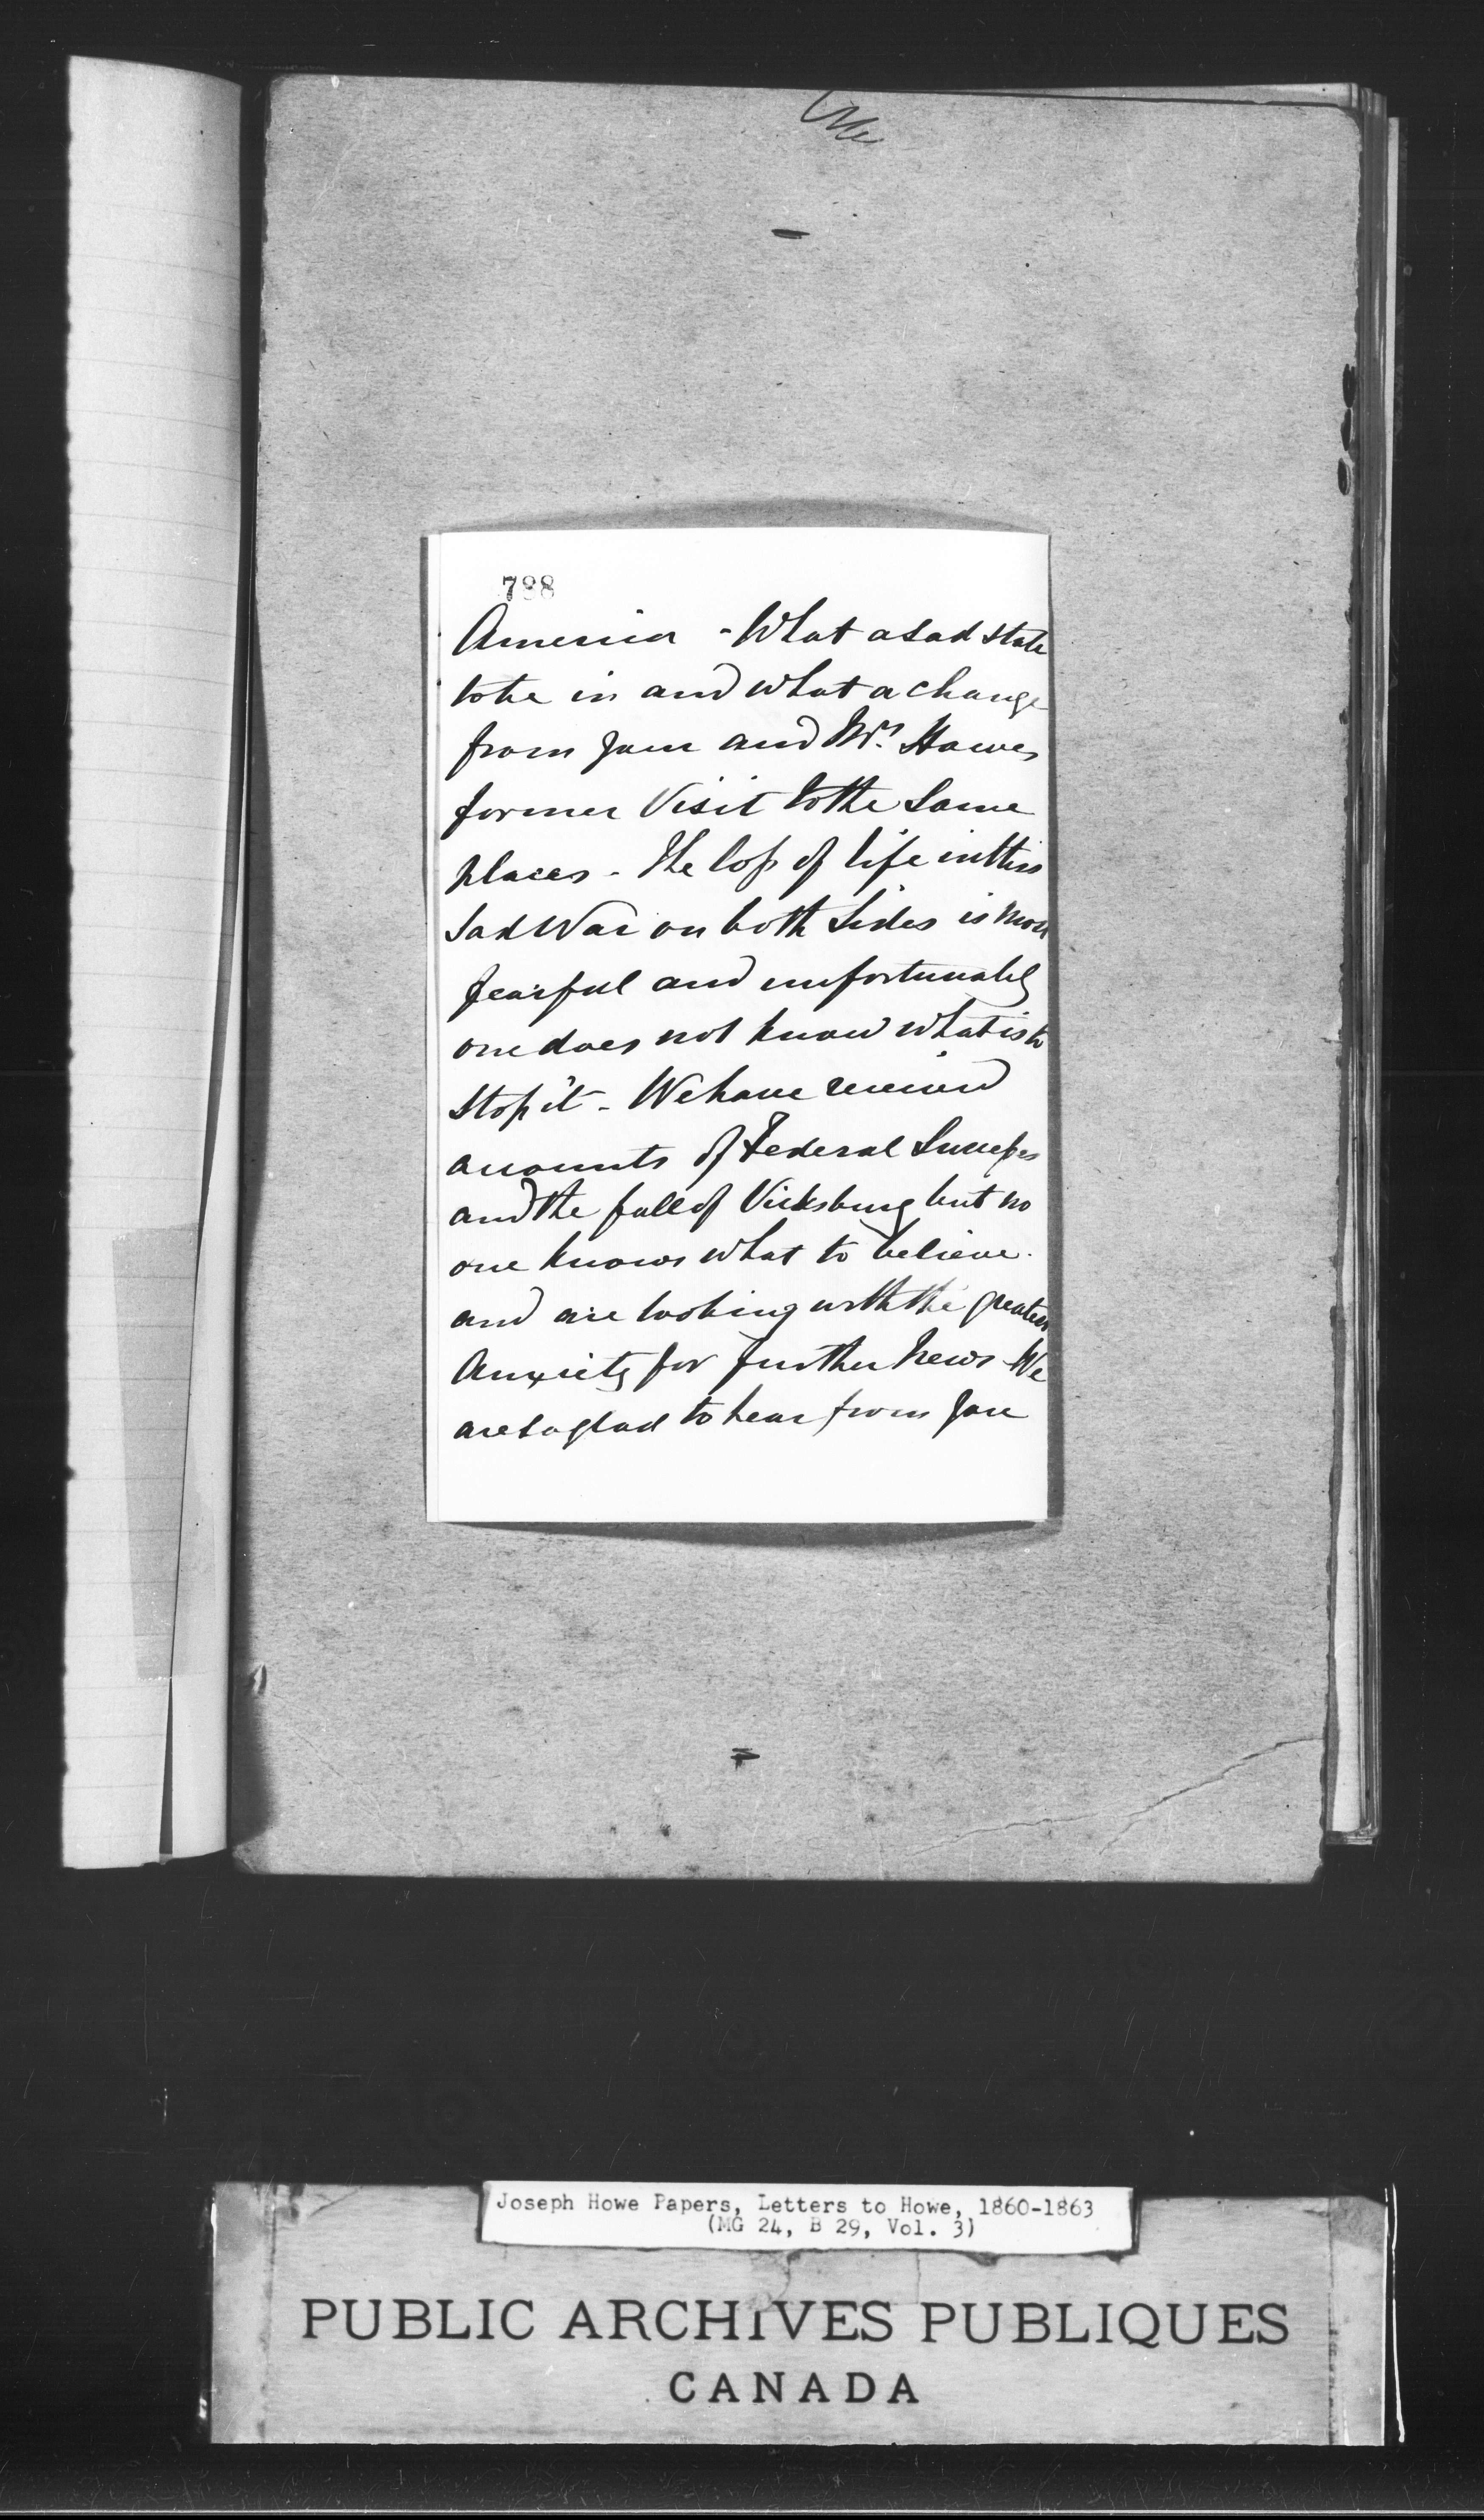 788
America - What a sad state
to be in and what a change
from your and Mrs. Howes
former Visit to the Same
places - The loss of life in this
Sad War on both Sides is most
fearful and unfortunately
one does not know what is to
stop it - We have received
accounts of Federal Successes
and the fall of Vicksburg but no
one knows what to believe.
and are looking with the greatest
Anxiety for further News - We
are so glad to hear from you
Joseph Howe Papers, Letters to Howe, 1860-1863
(MG 24, B 29, Vol. 3)
PUBLIC ARCHIVES PUBLIQUES
CANADA